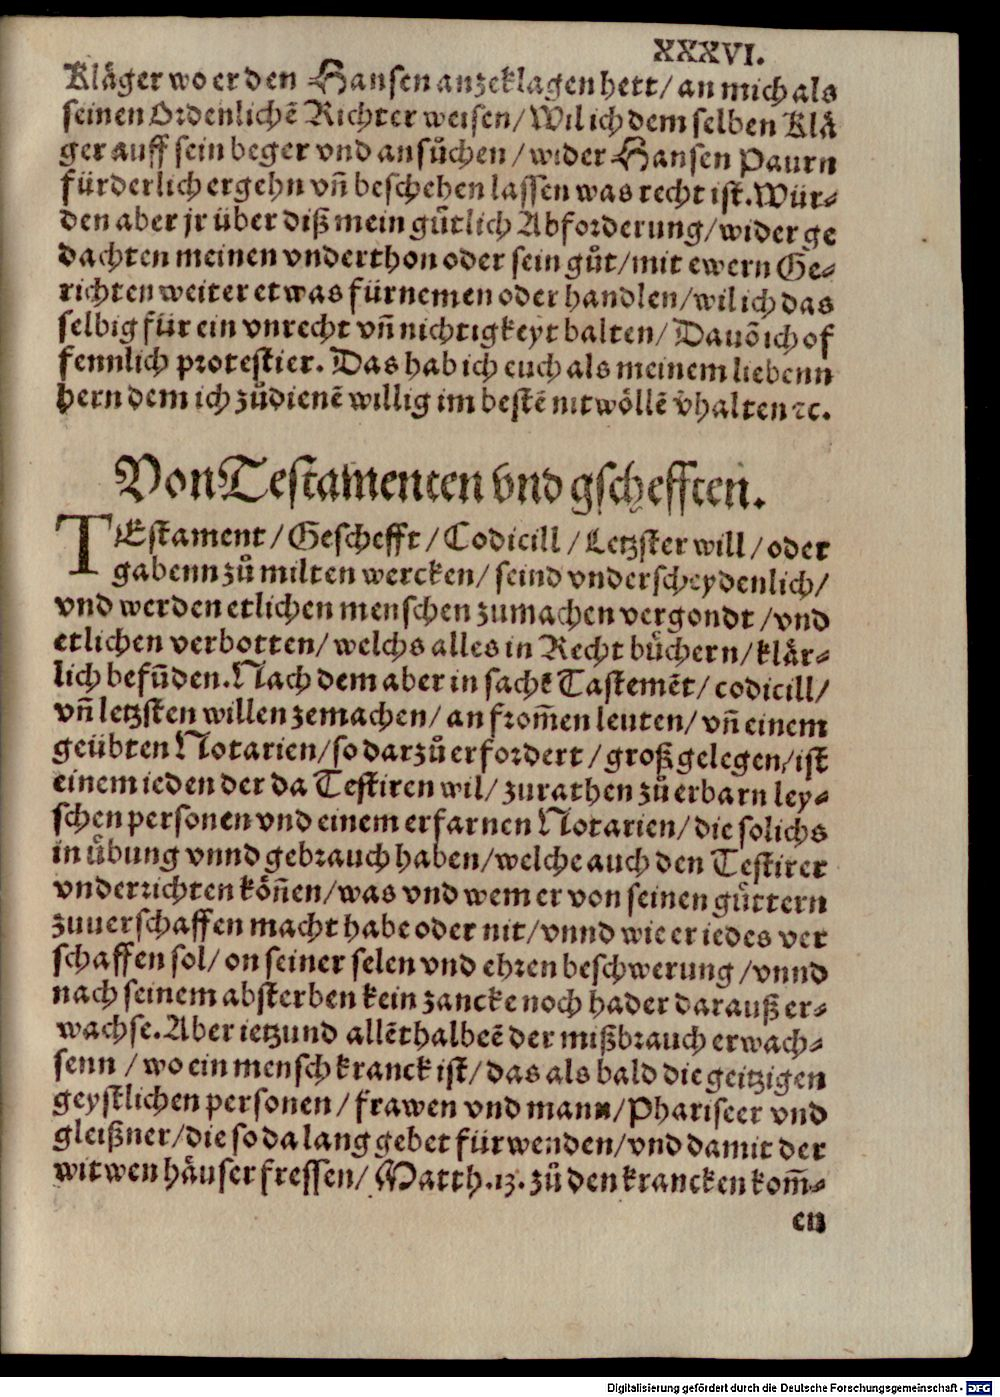 XXXVI.
Kläger wo er den Hansen anzeklagen hett/ an mich als
seinen Ordenlichẽ Richter weisen/ Wil ich dem selben Klä
ger auff sein beger vnd ansůchen/ wider Hansen Paurn
fürderlich ergehn vñ beschehen lassen was recht ist. Wür-
den aber jr über diß mein gůtlich Abforderung/ wider ge
dachten meinen vnderthon oder sein gůt/ mit ewern Ge-
richten weiter etwas fürnemen oder handlen/ wil ich das
selbig für ein vnrecht vñ nichtigkeyt halten/ Dauõ ich of
fennlich protestier. Das hab ich euch als meinem liebenn
hern dem ich zůdienẽ willig im bestẽ nit wöllẽ vhalten ꝛc.
Von Testamenten vnd gschefften.
TEstament/ Geschefft/ Codicill/ Letzster will/ oder
gabenn zů milten wercken/ seind vnderscheydenlich/
vnd werden etlichen menschen zumachen vergondt/ vnd
etlichen verbotten/ welchs alles in Recht büchern/ klär-
lich befũden. Nach dem aber in sachẽ Tastemẽt/ codicill/
vñ letzsten willen zemachen/ an from̃en leuten/ vñ einem
geübten Notarien/ so darzů erfordert/ groß gelegen/ ist
einem ieden der da Testiren wil/ zurathen zů erbarn ley-
schen personen vnd einem erfarnen Notarien/ die solichs
in übung vnnd gebrauch haben/ welche auch den Testirer
vnderrichten kön̄en/ was vnd wem er von seinen güttern
zuuerschaffen macht habe oder nit/ vnnd wie er iedes ver
schaffen sol/ on seiner selen vnd ehren beschwerung/ vnnd
nach seinem absterben kein zancke noch hader darauß er-
wachse. Aber ietzund allẽthalbeẽ der mißbrauch erwach-
senn/ wo ein mensch kranck ist/ das als bald die geitzigen
geystlichen personen/ frawen vnd mann/ Phariseer vnd
gleißner/ die so da lang gebet fürwenden/ vnd damit der
witwen häuser fressen/ Matth.13. zů den krancken kom̃-
en
Digitalisierung gefördert durch die Deutsche Forschungsgemeinschaft - DFG